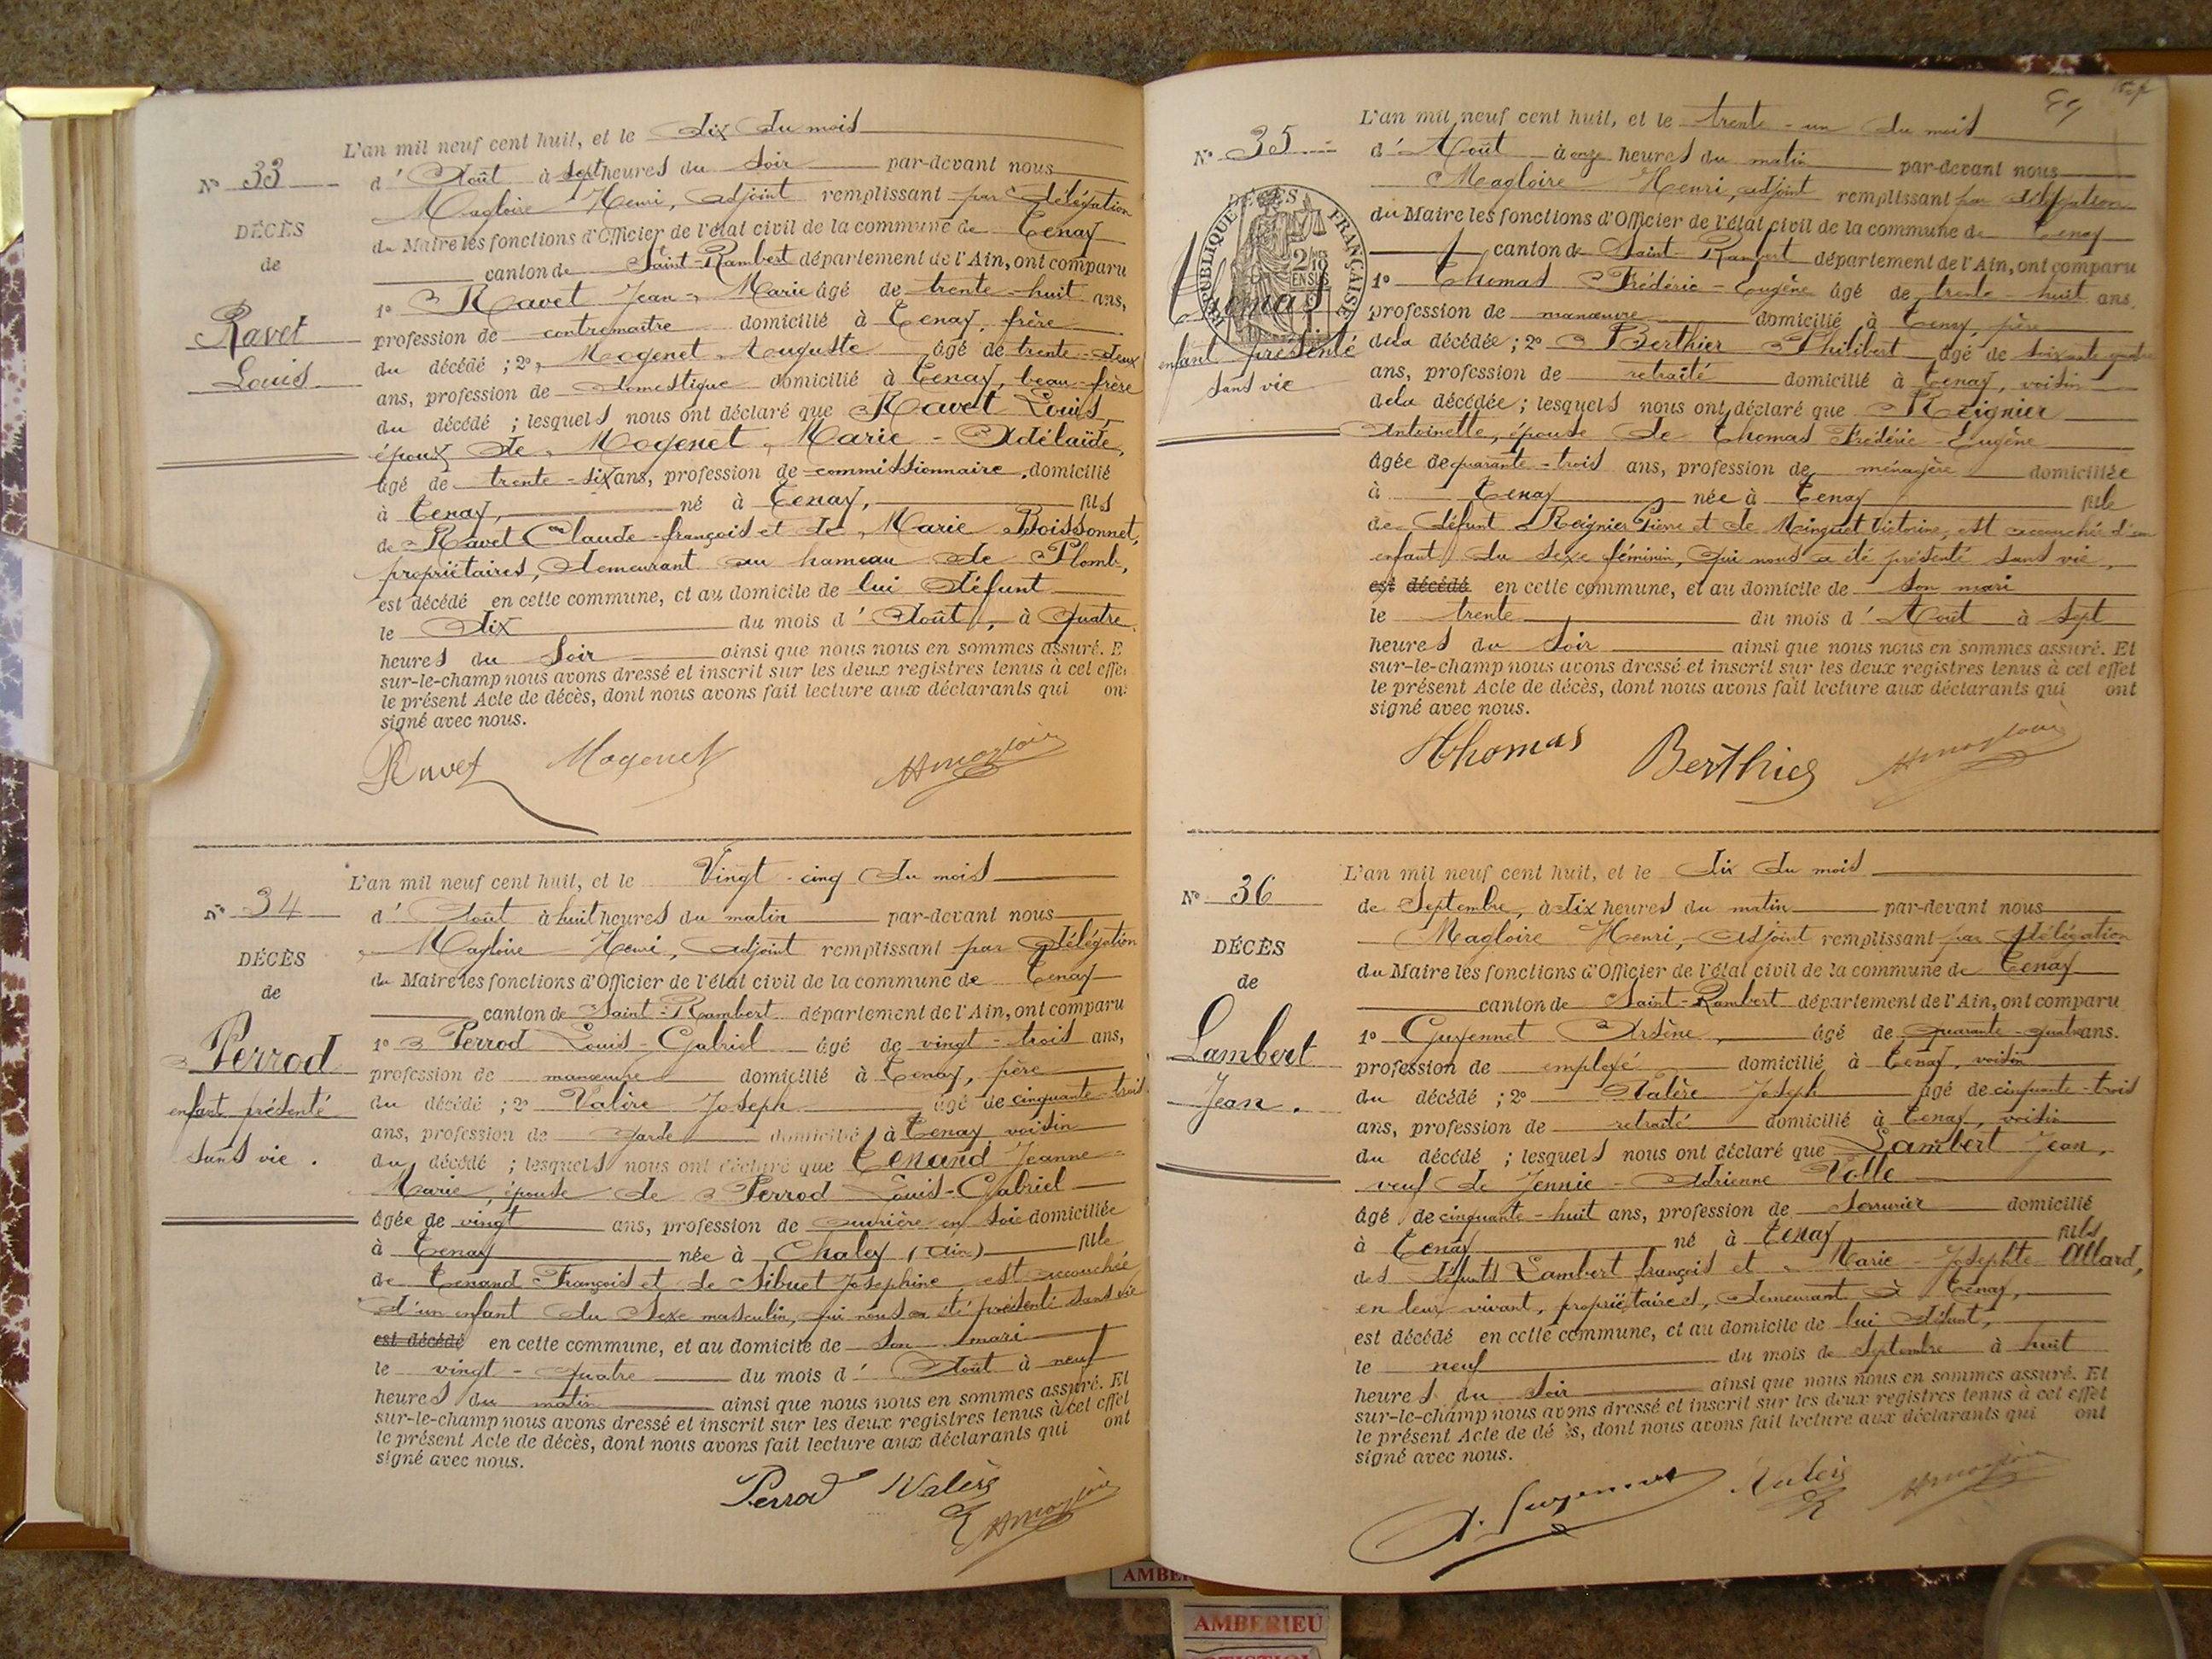 L'an mil neuf cent huit, et le dix du mois
N° 33
d'Août à sept heures du soir par-devant nous
Magloire Henri, adjoint remplissant par délégation
DÉCÈS
du Maire les fonctions d'Officier de l'état civil de la commune de Tenay
de
canton de Saint-Rambert département de l'Ain, ont comparu
1° Ravet Jean-Marie âgé de trente-huit ans,
Ravet
profession de contremaître domicilié à Tenay, frère
du décédé ; 2°, Mogenet Auguste âgé de trente-deux
Louis
ans, profession de domestique domicilié à Tenay, beau-frère
du décédé ; lesquels nous ont déclaré que Ravet Louis,
époux de Mogenet Marie-Adélaïde,
âgé de trente-six ans, profession de commissionnaire, domicilié
à Tenay, né à Tenay, fils
de Ravet Claude-françois et de Marie Boissonnet,
propriétaires, demeurant au hameau de Plomb,
est décédé en cette commune, et au domicile de lui défunt
le dix du mois d'Août, à quatre
heures du soir ainsi que nous nous en sommes assuré. E
sur-le-champ nous avons dressé et inscrit sur les deux registres tenus à cet effe
le présent Acte de décès, dont nous avons fait lecture aux déclarants qui on
signé avec nous.
Ravet Mogenet Hmagloire
L'an mil neuf cent huit, et le Vingt-cinq du mois
N° 34
d'Août à huit heures du matin par-devant nous
Magloire Henri, adjoint remplissant par délégation
DÉCÈS
du Maire les fonctions d'Officier de l'état civil de la commune de Tenay
de
canton de Saint-Rambert département de l'Ain, ont comparu
1° Perrod Louis-Gabriel âgé de vingt-trois ans,
Perrod
profession de manœuvre domicilié à Tenay, père
enfant présenté
du décédé ; 2° Valère Joseph âgé de cinquante-trois
ans, profession de garde domicilié à Tenay voisin
sans vie.
du décédé ; lesquels nous ont déclaré que Tenand Jeanne-
Marie, épouse de Perrod Louis-Gabriel
âgée de vingt ans, profession de ouvrière en soie domiciliée
à Tenay née à Chaley (Ain) fille
de Tenand François et de Sibuet Josephine est accouchée
d'un enfant du sexe masculin, qui nous a été présenté sans vie
est décédé en cette commune, et au domicile de son mari
le vingt-quatre du mois d'Août à neuf
heures du matin ainsi que nous nous en sommes assuré. Et
sur-le-champ nous avons dressé et inscrit sur les deux registres tenus à cet effet
le présent Acte de décès, dont nous avons fait lecture aux déclarants qui ont
signé avec nous.
Perrod Valère Hmagloire
89
L'an mil neuf cent huit, et le trente-un du mois
N° 35
d'Août à onze heures du matin par-devant nous
Magloire Henri, adjoint remplissant par délégation
DÉCÈS
RÉPUBLIQUE FRANÇAISE
du Maire les fonctions d'Officier de l'état civil de la commune de Tenay
canton de Saint-Rambert département de l'Ain, ont comparu
Thomas
1° Thomas Frédéric-Eugène âgé de trente-huit ans
profession de manœuvre domicilié à Tenay, père
enfant présenté
de la décédée ; 2° Berthier Philibert âgé de soixante-quatre
sans vie
ans, profession de retraité domicilié à Tenay, voisin
de la décédée ; lesquels nous ont déclaré que Reignier
Antoinette, épouse de Thomas Frédéric-Eugène
âgée de quarante-trois ans, profession de ménagère domiciliée
à Tenay née à Tenay fille
de défunt Reignier Pierre et de Minguet Victorine, est accouchée d'un
enfant du sexe féminin, qui nous a été présenté sans vie,
est décédé en cette commune, et au domicile de son mari
le trente du mois d'Août à sept
heures du soir ainsi que nous nous en sommes assuré. Et
sur-le-champ nous avons dressé et inscrit sur les deux registres tenus à cet effet
le présent Acte de décès, dont nous avons fait lecture aux déclarants qui ont
signé avec nous.
Thomas Berthier Hmagloire
L'an mil neuf cent huit, et le dix du mois
N° 36
de Septembre, à dix heures du matin par-devant nous
Magloire Henri, adjoint remplissant par délégation
DÉCÈS
du Maire les fonctions d'Officier de l'état civil de la commune de Tenay
de
canton de Saint-Rambert département de l'Ain, ont comparu
Lambert
1° Guyennet Arsène, âgé de quarante-quatre ans.
profession de employé domicilié à Tenay, voisin
Jean.
du décédé ; 2° Valère Joseph âgé de cinquante-trois
ans, profession de retraité domicilié à Tenay, voisin
du décédé ; lesquels nous ont déclaré que Lambert Jean,
veuf de Jennie-Adrienne Volle
âgé de cinquante-huit ans, profession de serrurier domicilié
à Tenay né à Tenay fils
des défunts Lambert françois et Marie-Josephte Allard,
en leur vivant, propriétaires, demeurant à Tenay,
est décédé en cette commune, et au domicile de lui défunt,
le neuf du mois de Septembre à huit
heures du soir ainsi que nous nous en sommes assuré. Et
sur-le-champ nous avons dressé et inscrit sur les deux registres tenus à cet effet
le présent Acte de dé ès, dont nous avons fait lecture aux déclarants qui ont
signé avec nous.
A. Guyennet Valère Hmagloire
AMBERIEU